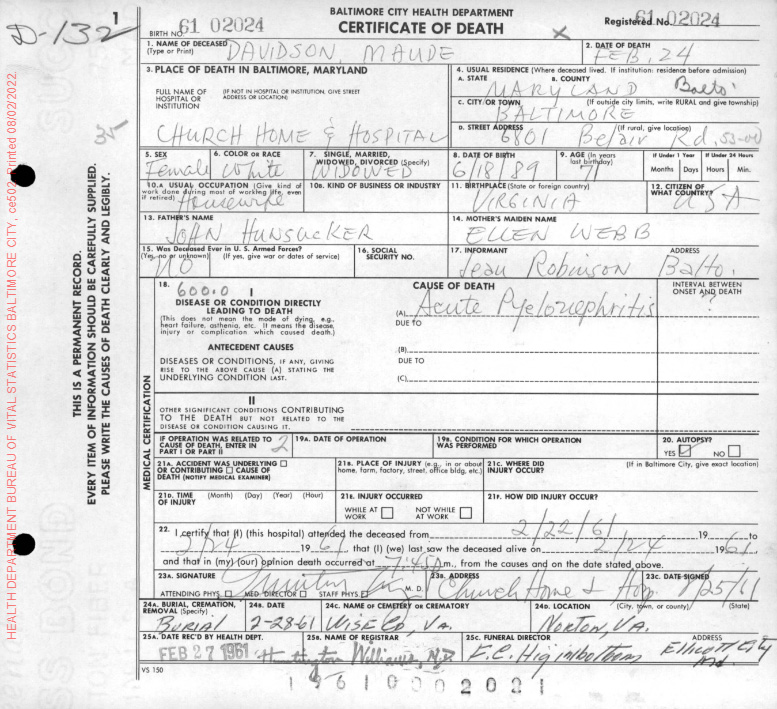 1
D-132
BALTIMORE CITY HEALTH DEPARTMENT
CERTIFICATE OF DEATH
BIRTH NO. 61 02024
X
Registered No. 61 02024
1. NAME OF DECEASED (Type or Print) DAVIDSON, MAUDE
2. DATE OF DEATH FEB, 24
3. PLACE OF DEATH IN BALTIMORE, MARYLAND
FULL NAME OF HOSPITAL OR INSTITUTION (IF NOT IN HOSPITAL OR INSTITUTION, GIVE STREET ADDRESS OR LOCATION)
CHURCH HOME & HOSPITAL
4. USUAL RESIDENCE (Where deceased lived. If institution: residence before admission)
A. STATE MARYLAND B. COUNTY Balto.
C. CITY OR TOWN (If outside city limits, write RURAL and give township) BALTIMORE
D. STREET ADDRESS (If rural, give location) 6801 Belair Rd, 53-00
5. SEX Female
6. COLOR OR RACE White
7. SINGLE, MARRIED, WIDOWED, DIVORCED (Specify) WIDOWED
8. DATE OF BIRTH 6/18/89
9. AGE (In years last birthday) 71
If Under 1 Year Months Days
If Under 24 Hours Hours Min.
10.A USUAL OCCUPATION (Give kind of work done during most of working life, even if retired) Housewife
10B. KIND OF BUSINESS OR INDUSTRY
11. BIRTHPLACE (State or foreign country) VIRGINIA
12. CITIZEN OF WHAT COUNTRY? USA
13. FATHER'S NAME JOHN HUNSUCKER
14. MOTHER'S MAIDEN NAME ELLEN WEBB
15. Was Deceased Ever in U. S. Armed Forces? (Yes, no or unknown) (If yes, give war or dates of service) NO
16. SOCIAL SECURITY NO.
17. INFORMANT Jean Robinson ADDRESS Balto.
18. 600.0 I
DISEASE OR CONDITION DIRECTLY LEADING TO DEATH
(This does not mean the mode of dying, e.g., heart failure, asthenia, etc. It means the disease, injury or complication which caused death.)
CAUSE OF DEATH
(A) Acute Pyelonephritis
DUE TO
INTERVAL BETWEEN ONSET AND DEATH ?
ANTECEDENT CAUSES
DISEASES OR CONDITIONS, IF ANY, GIVING RISE TO THE ABOVE CAUSE (A) STATING THE UNDERLYING CONDITION LAST.
(B)
DUE TO
(C)
II
OTHER SIGNIFICANT CONDITIONS CONTRIBUTING TO THE DEATH BUT NOT RELATED TO THE DISEASE OR CONDITION CAUSING IT.
IF OPERATION WAS RELATED TO CAUSE OF DEATH, ENTER IN PART I OR PART II 2
19A. DATE OF OPERATION
19B. CONDITION FOR WHICH OPERATION WAS PERFORMED
20. AUTOPSY? YES NO
21A. ACCIDENT WAS UNDERLYING OR CONTRIBUTING CAUSE OF DEATH (NOTIFY MEDICAL EXAMINER)
21B. PLACE OF INJURY (e.g., in or about home, farm, factory, street, office bldg., etc.)
21C. WHERE DID INJURY OCCUR? (If in Baltimore City, give exact location)
21D. TIME OF INJURY (Month) (Day) (Year) (Hour)
21E. INJURY OCCURRED WHILE AT WORK NOT WHILE AT WORK
21F. HOW DID INJURY OCCUR?
22. I certify that (I) (this hospital) attended the deceased from 2/22/61 19 to
2/24 1961 that (I) (we) last saw the deceased alive on 2/24 1961
and that in (my) (our) opinion death occurred at 7:45 A m., from the causes and on the date stated above.
23A. SIGNATURE M. D.
ATTENDING PHYS. MED. DIRECTOR STAFF PHYS.
23B. ADDRESS Church Home & Hosp.
23C. DATE SIGNED 2/25/61
24A. BURIAL, CREMATION, REMOVAL (Specify) Burial
24B. DATE 2-28-61
24C. NAME OF CEMETERY OR CREMATORY WISE CO, VA.
24D. LOCATION (City, town, or county) (State) NORTON, VA.
25A. DATE REC'D BY HEALTH DEPT. FEB 27 1961
25B. NAME OF REGISTRAR Huntington Williams, M.D.
25C. FUNERAL DIRECTOR E.C. Higinbothom ADDRESS Ellicott City Md.
VS 150
19610002021
MEDICAL CERTIFICATION
THIS IS A PERMANENT RECORD.
EVERY ITEM OF INFORMATION SHOULD BE CAREFULLY SUPPLIED.
PLEASE WRITE THE CAUSES OF DEATH CLEARLY AND LEGIBLY.
HEALTH DEPARTMENT BUREAU OF VITAL STATISTICS BALTIMORE CITY, ce502, Printed 08/02/2022.